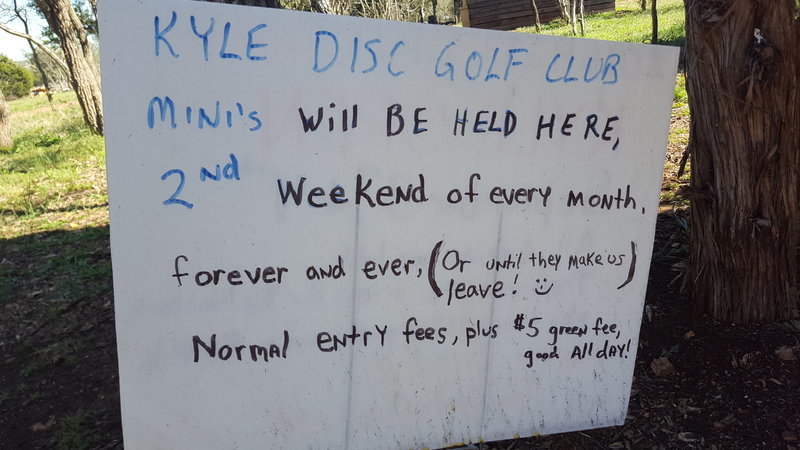 KYLE DISC GOLF CLUB
MINI'S Will BE HELD HERE,
2nd Weekend of every month.
forever and ever, (Or until they make us
leave! :))
Normal entry fees, plus $5 green fee,
good All dAY!